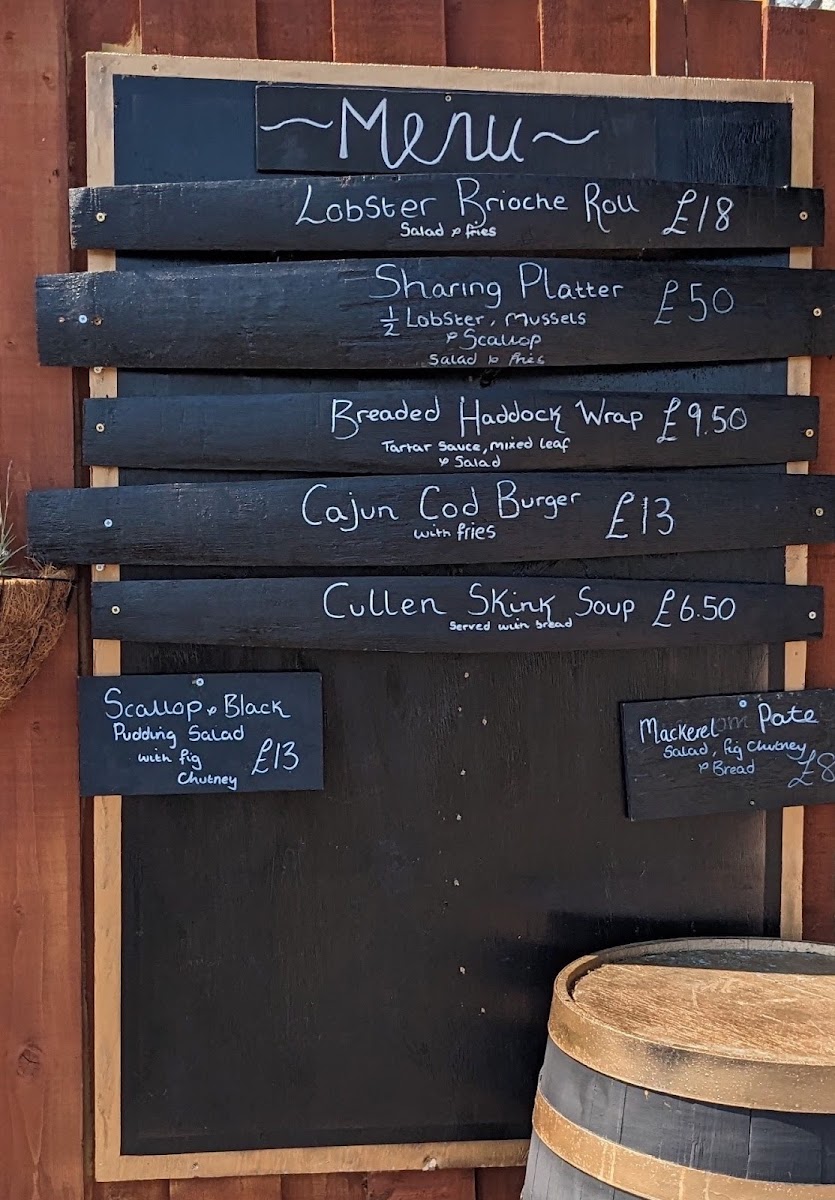 ~Menu~
Lobster Brioche Roll £18
Salad & fries
Sharing Platter £50
½ Lobster, Mussels
& Scallop
Salad & fries
Breaded Haddock Wrap £9.50
Tartar Sauce, mixed leaf
& Salad
Cajun Cod Burger £13
with fries
Cullen Skink Soup £6.50
Served with bread
Scallop & Black
Pudding Salad
with fig
Chutney £13
Mackerel Pate
Salad, fig Chutney
& Bread
£8